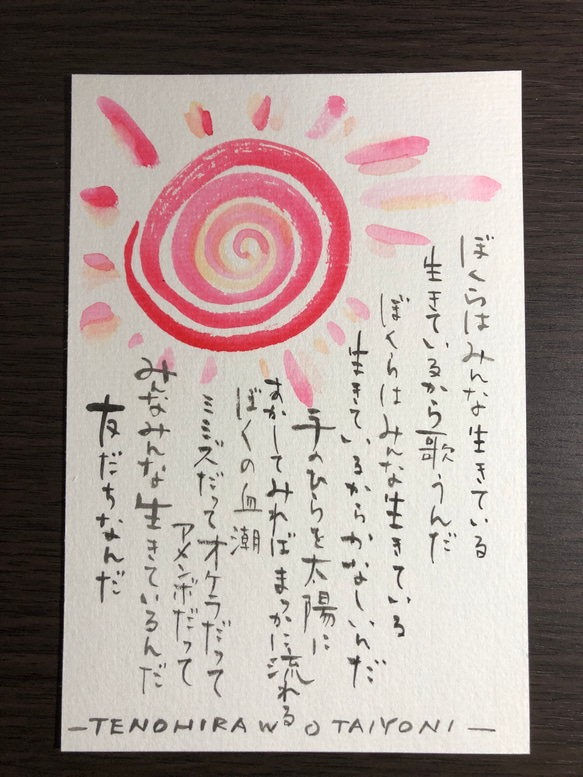 ぼくらはみんな生きている
生きているから歌うんだ
ぼくらはみんな生きている
生きているからかなしいんだ
手のひらを太陽に
すかしてみればまっかに流れる
ぼくの血潮
ミミズだってオケラだって
アメンボだって
みんなみんな生きているんだ
友だちなんだ
—TENOHIRA WO TAIYONI—